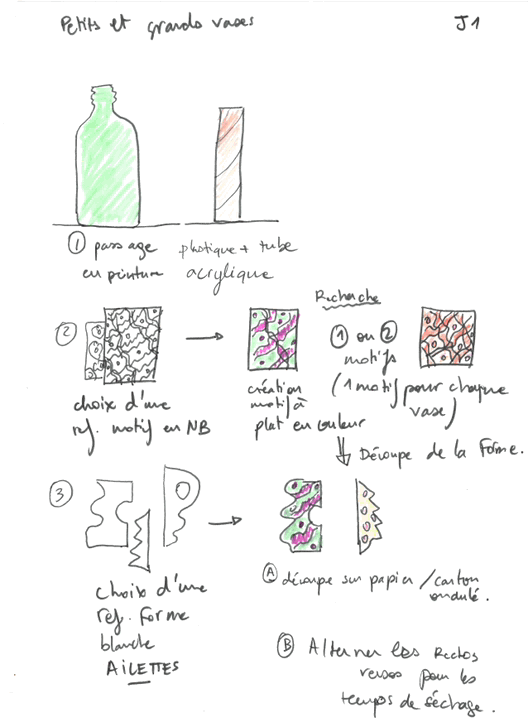 Petits et grands vases
J1
① passage
en peinture
plastique + tube
acrylique
②
choix d'une
réf. motif en NB
création
motif à
plat en couleur
Recherche
① ou ②
motifs
(1 motif pour chaque
vase)
Découpe de la Forme.
③
choix d'une
réf. forme
blanche
AILETTES
Ⓐ découpe sur papier / carton
ondulé.
Ⓑ Alterner les Rectos
versos pour les
temps de séchage.